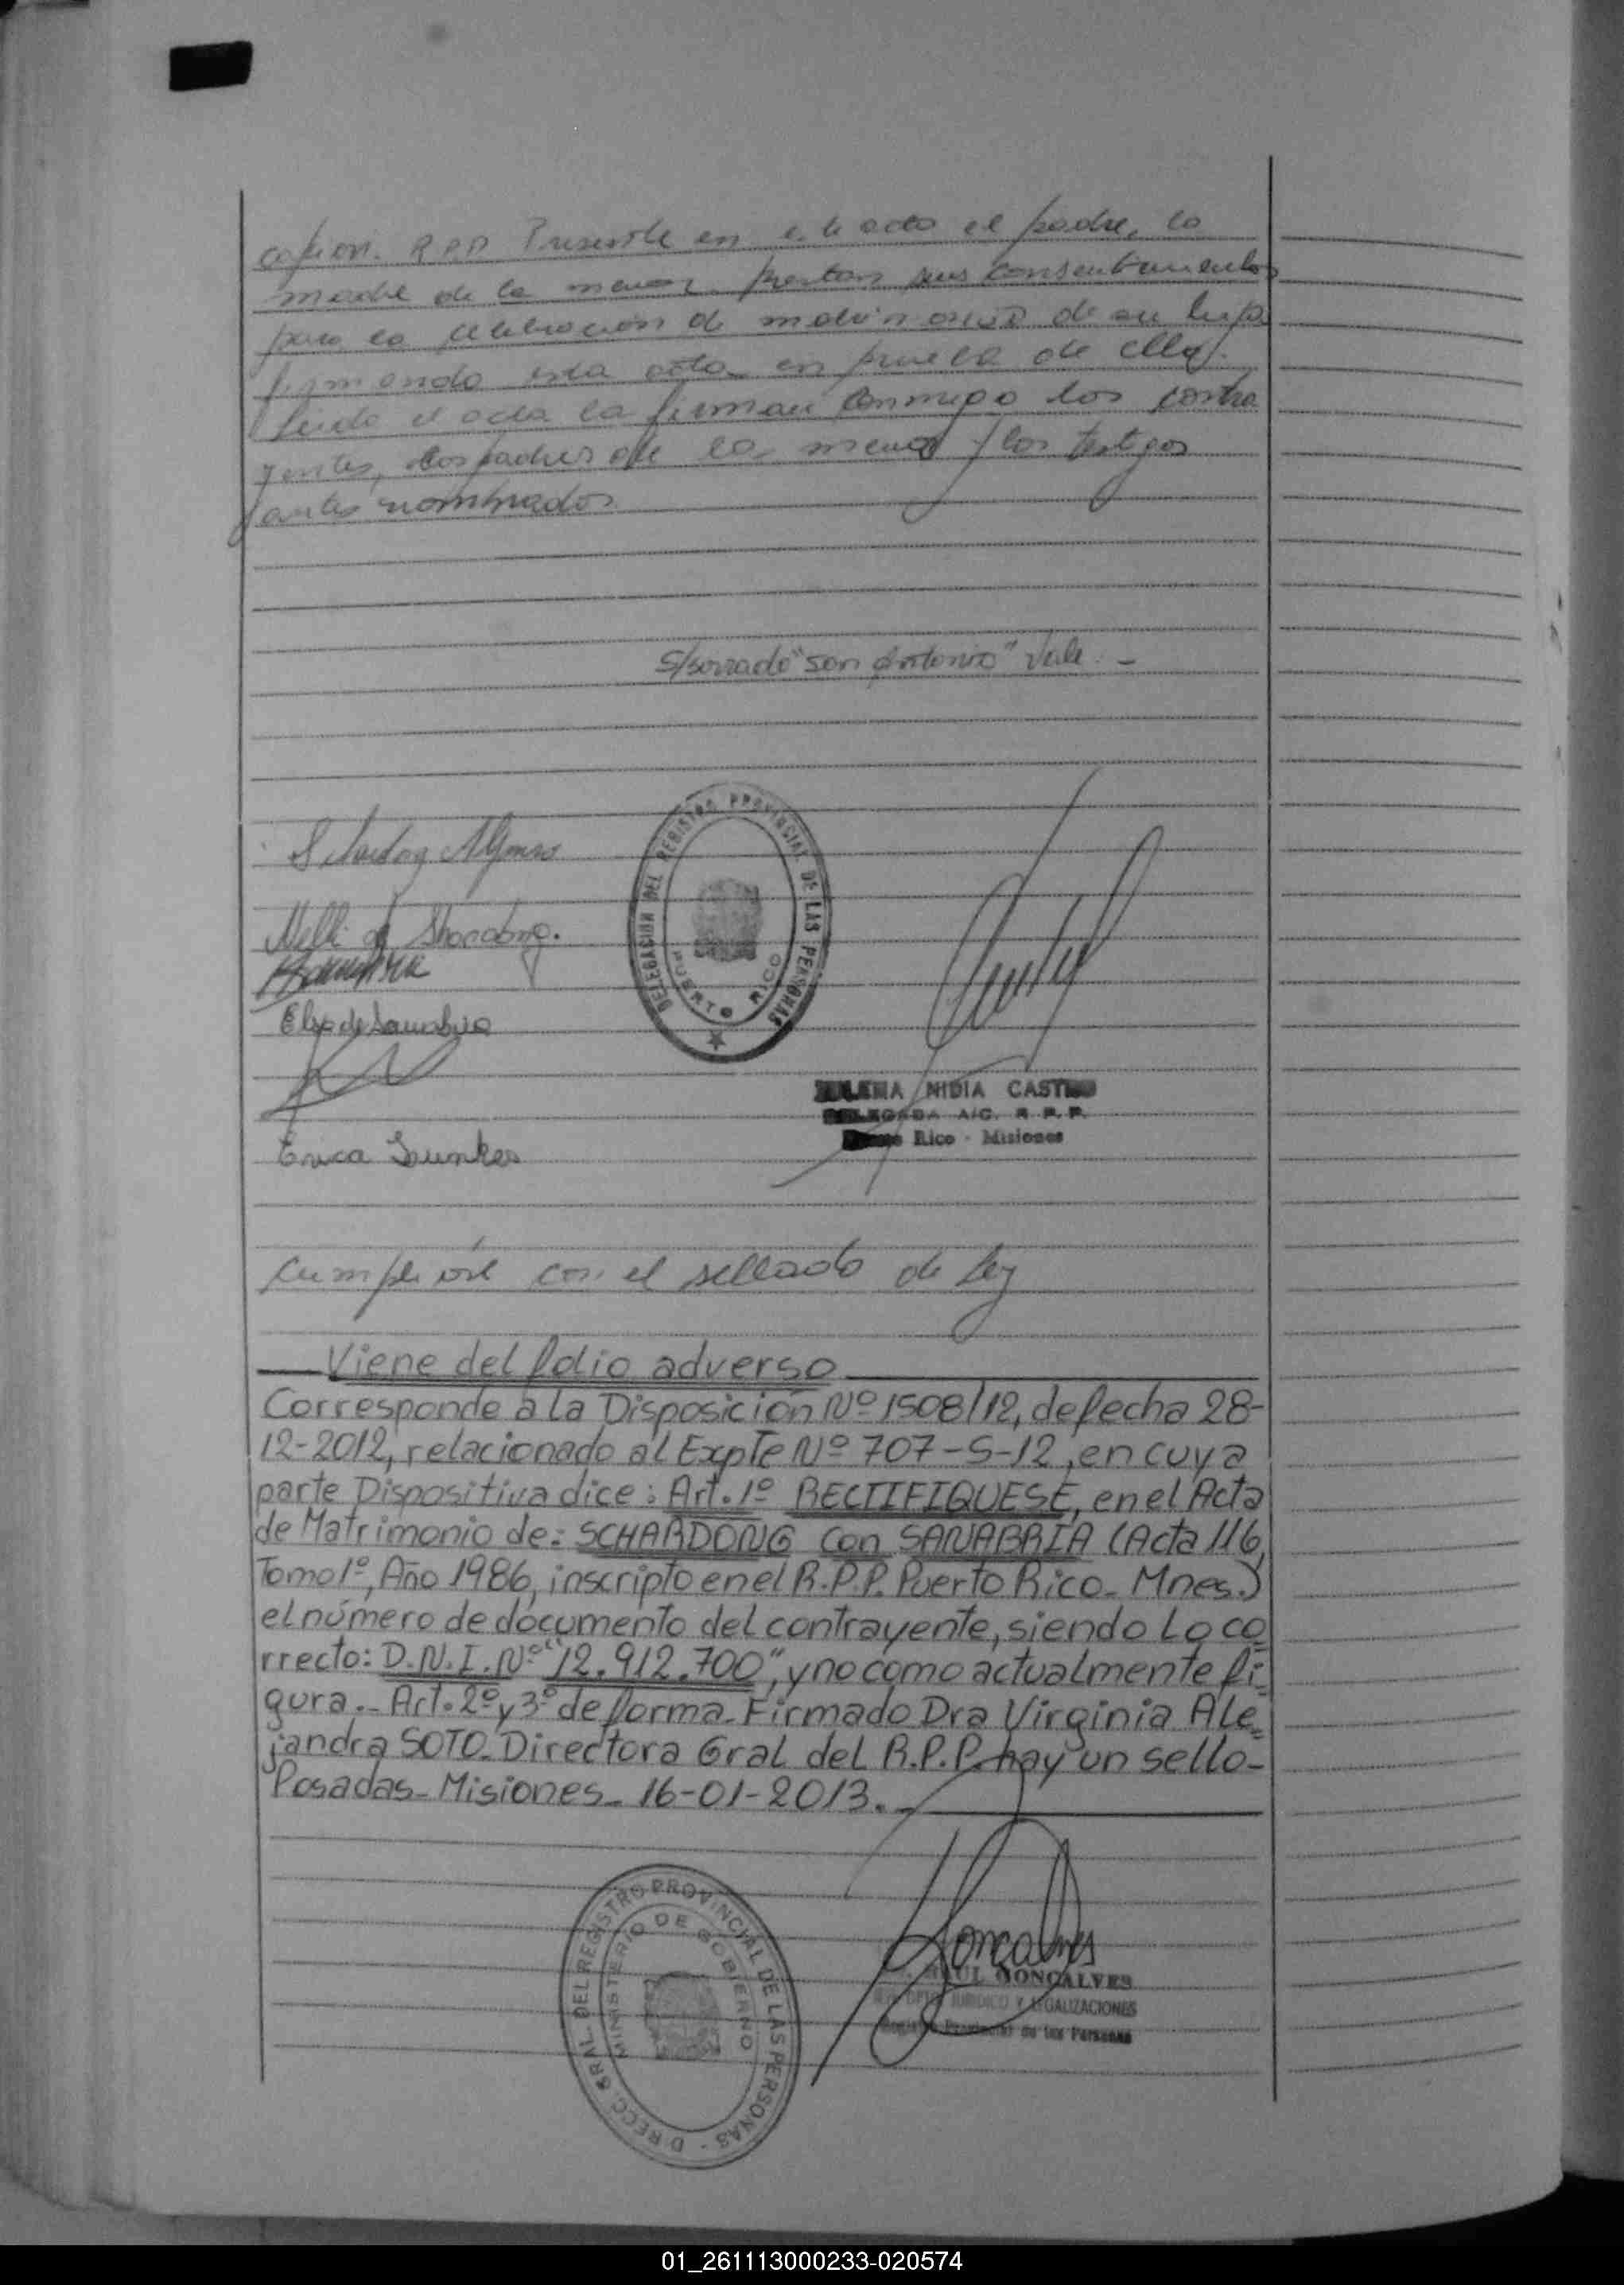 Presente en este acto el padre, la
madre de la menor prestan sus consentimientos
para la celebración de matrimonio de su hija
firmando esta acta en prueba de ello.
Leida el acta la firman conmigo los contra
yentes, los padres de la menor y los testigos
antes nombrados
S/borrado "San Antonio" Vale. -
Schardong Alfonso
Nelli de Shardong.
Sanabria
Elsa de Sanabria
Erica Sunkes
DELEGACION DEL REGISTRO PROVINCIAL DE LAS PERSONAS
PUERTO RICO
NIDIA CASTRO
DELEGADA A/C. R. P. P.
Puerto Rico - Misiones
Cumplióse con el sellado de Ley
Viene del folio adverso
Corresponde a la Disposición Nº 1508/12, de fecha 28-
12-2012, relacionado al Expte Nº 707-S-12, en cuya
parte Dispositiva dice: Art. 1º RECTIFIQUESE, en el Acta
de Matrimonio de: SCHARDONG con SANABRIA (Acta 116,
Tomo 1º, Año 1986, inscripto en el R.P.P. Puerto Rico_ Mnes.)
el número de documento del contrayente, siendo Lo co
rrecto: D.N.I. Nº "12.912.700", y no como actualmente fi_
gura._ Art. 2º y 3º de forma_ Firmado Dra Virginia Ale_
jandra SOTO_ Directora Gral del R.P.P. hay un sello_
Posadas_ Misiones_ 16-01-2013._
DIRECC. GRAL. DEL REGISTRO PROVINCIAL DE LAS PERSONAS -
MINISTERIO DE GOBIERNO
Goncalves
RAUL GONCALVES
DPTO. JURIDICO Y LEGALIZACIONES
Registro Provincial de las Personas
01_261113000233-020574